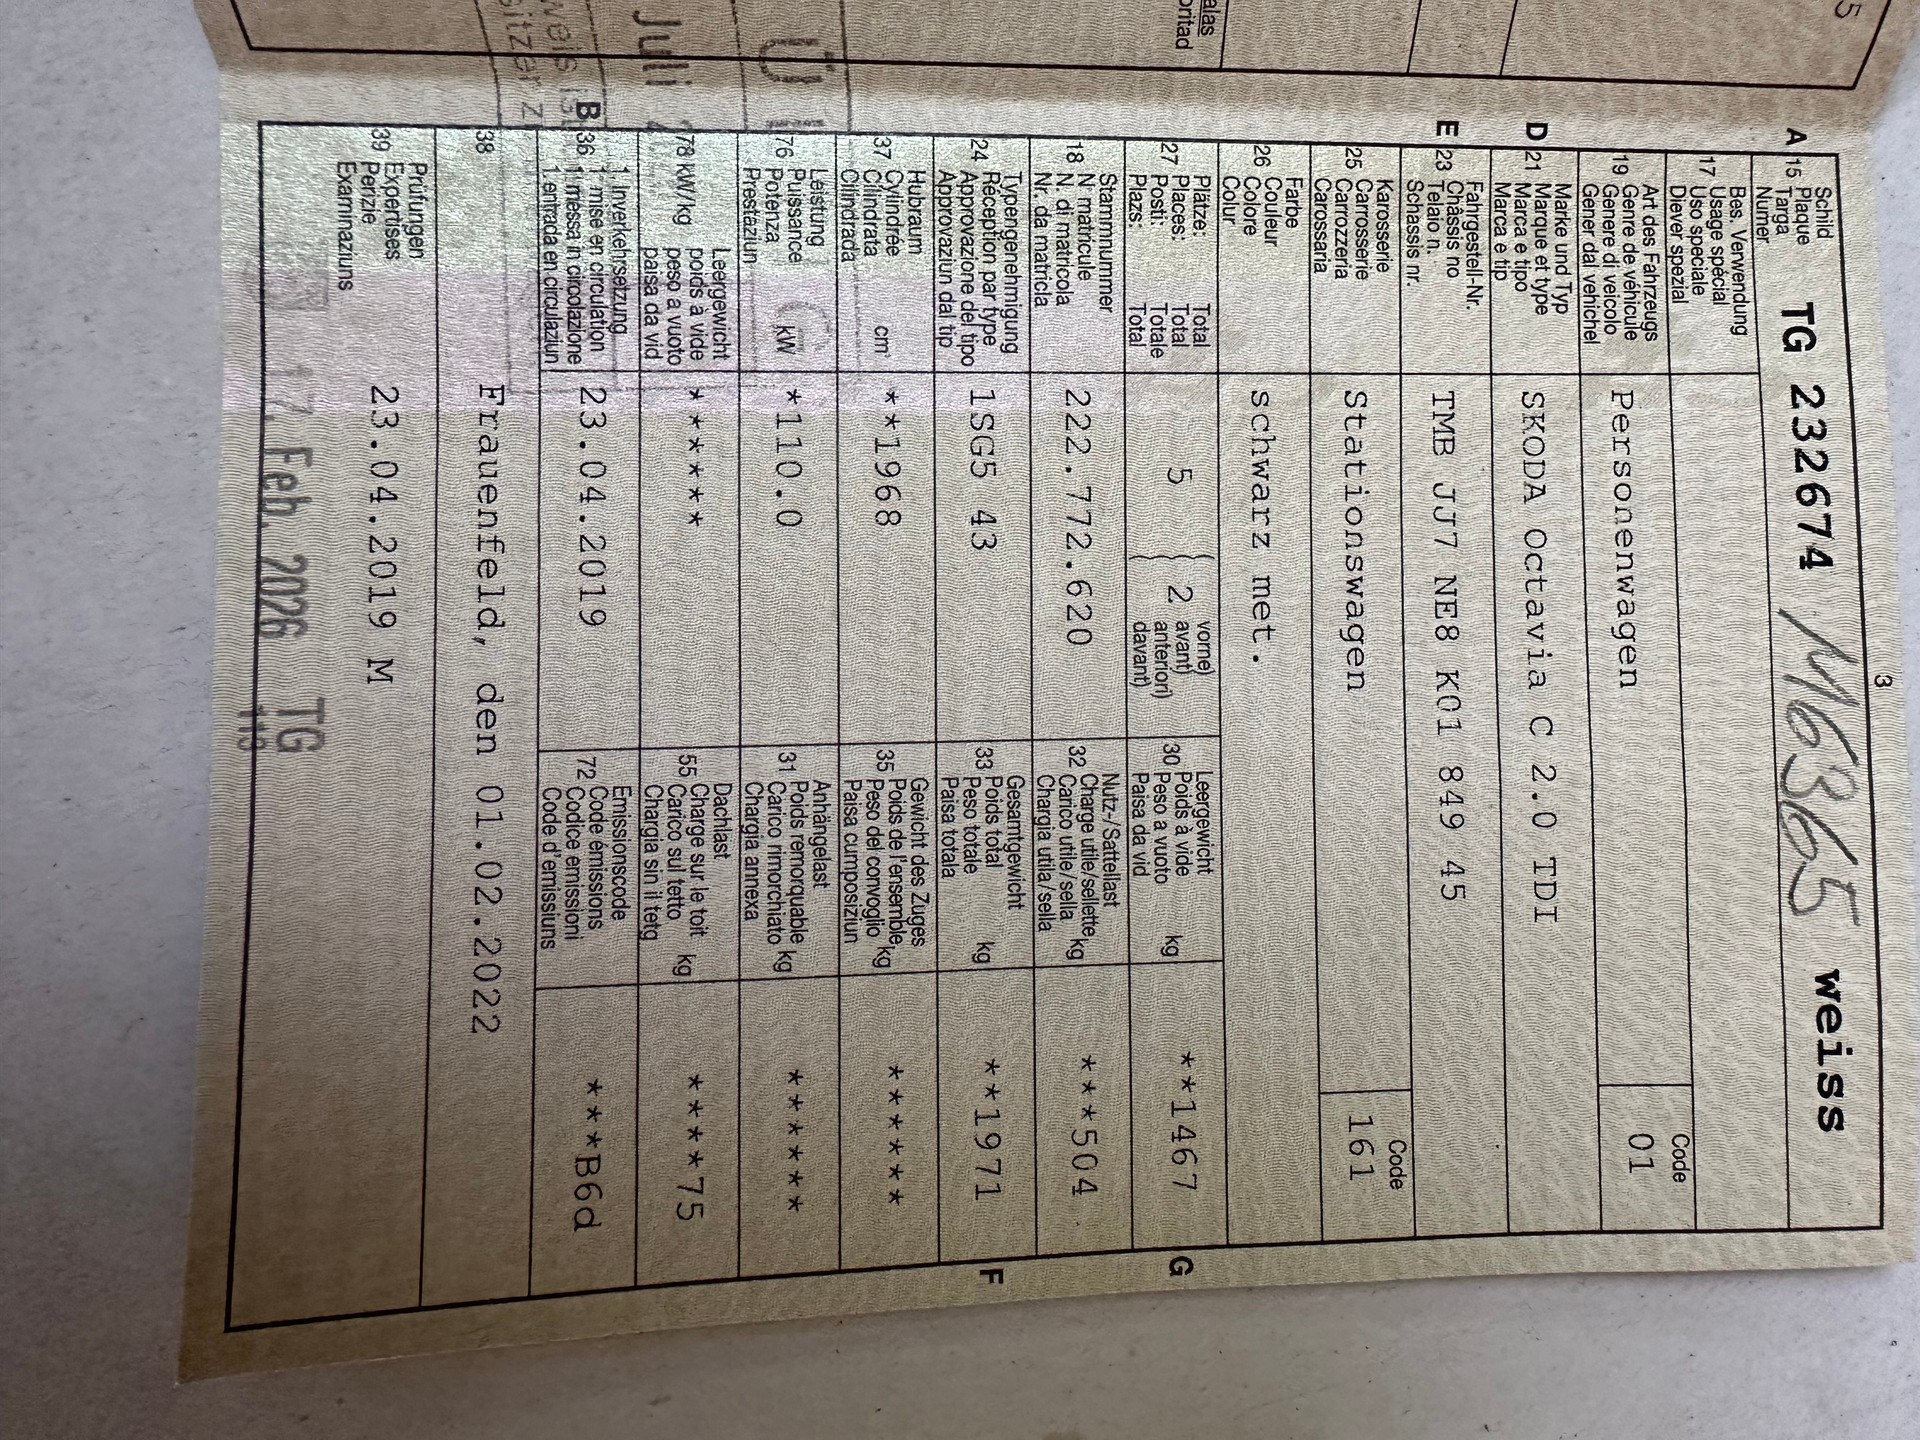 3
A 15 Schild Plaque Targa Numer TG 232674 M6365 weiss
17 Bes. Verwendung
Usage spécial
Uso speciale
Diever spezial
19 Art des Fahrzeugs
Genre de véhicule
Genere di veicolo
Gener dal vehichel
Personenwagen
Code
01
D 21 Marke und Typ
Marque et type
Marca e tipo
Marca e tip
SKODA Octavia C 2.0 TDI
E 23 Fahrgestell-Nr.
Châssis no
Telaio n.
Schassis nr.
TMB JJ7 NE8 K01 849 45
25 Karosserie
Carrosserie
Carrozzeria
Carossaria
Stationswagen
Code
161
26 Farbe
Couleur
Colore
Colur
schwarz met.
27 Plätze: Total
Places: Total
Posti: Totale
Plazs: Total
5 ( 2 vorne)
avant)
anteriori)
davant)
30 Leergewicht
Poids à vide
Peso a vuoto kg
Paisa da vid
**1467 G
18 Stammnummer
N matricule
N. di matricola
Nr. da matricla
222.772.620
32 Nutz-/Sattellast
Charge utile/sellette
Carico utile/sella kg
Chargia utila/sella
***504
24 Typengenehmigung
Réception par type
Approvazione del tipo
Approvaziun dal tip
1SG5 43
33 Gesamtgewicht
Poids total
Peso totale kg
Paisa totala
**1971 F
37 Hubraum
Cylindrée
Cilindrata cm³
Cilindrada
**1968
35 Gewicht des Zuges
Poids de l'ensemble
Peso del convoglio kg
Paisa cumposiziun
******
76 Leistung
Puissance
Potenza kW
Prestaziun
*110.0
31 Anhängelast
Poids remorquable
Carico rimorchiato kg
Chargia annexa
******
78 kW/kg Leergewicht
poids à vide
peso a vuoto
paisa da vid
******
55 Dachlast
Charge sur le toit
Carico sul tetto kg
Chargia sin il tetg
****75
B 36 1. Inverkehrsetzung
1re mise en circulation
1a messa in circolazione
1. entrada en circulaziun
23.04.2019
72 Emissionscode
Code émissions
Codice emissioni
Code d'emissiuns
***B6d
38 Frauenfeld, den 01.02.2022
39 Prüfungen
Expertises
Perizie
Examinaziuns
23.04.2019 M
17. Feb. 2026 TG
113